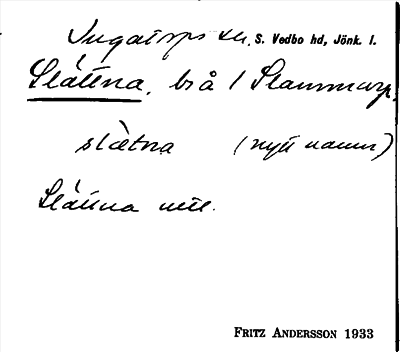 Ingatorps sn, S. Vedbo hd, Jönk. l.
Slättna, bi å / Stammarp.
slätna (nytt namn)
Slättna utt.
FRITZ ANDERSSON 1933